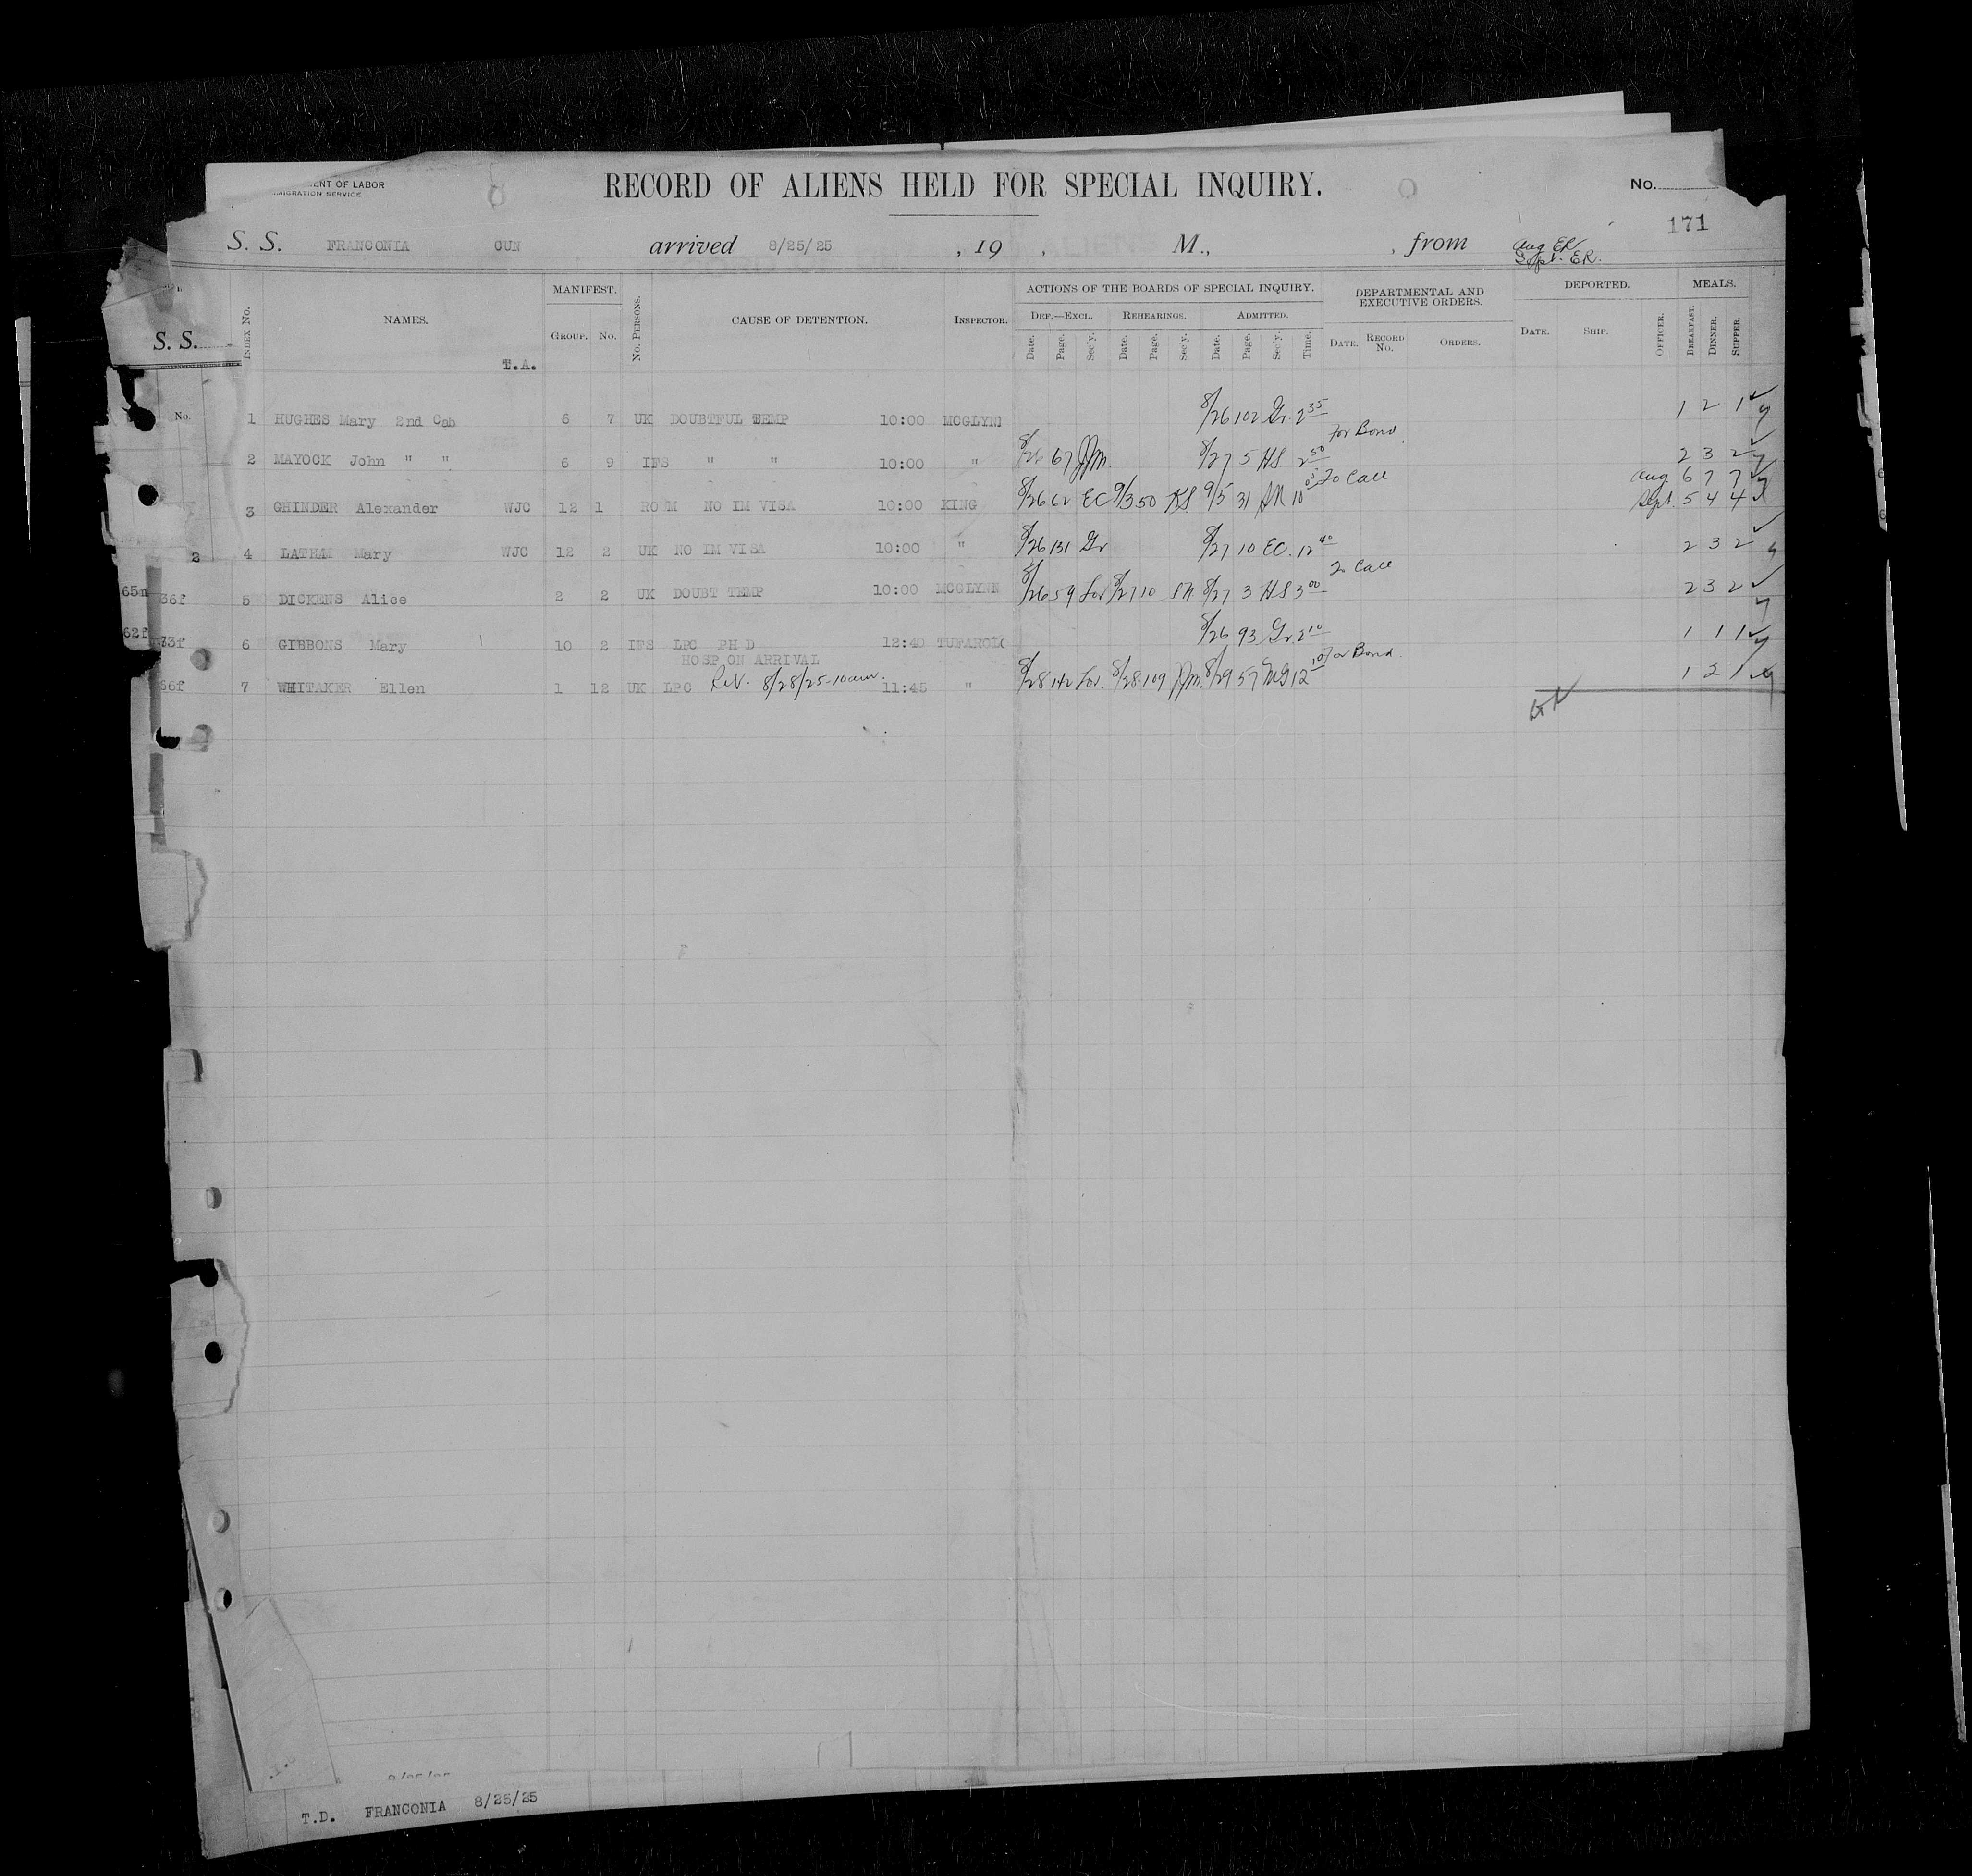 ENT OF LABOR
MIGRATION SERVICE
RECORD OF ALIENS HELD FOR SPECIAL INQUIRY.
No.
171
S. S. FRANCONIA CUN arrived 8/25/25 , 19 , M., , from Aug ER
Sept. ER.
MANIFEST. ACTIONS OF THE BOARDS OF SPECIAL INQUIRY. DEPARTMENTAL AND EXECUTIVE ORDERS. DEPORTED. MEALS.
S. S.
INDEX NO. NAMES. GROUP. NO. No. PERSONS. CAUSE OF DETENTION. INSPECTOR. DEF.—EXCL. REHEARINGS. ADMITTED.
Date. Page. Sec'y. Date. Page. Sec'y. Date. Page. Sec'y. Time. DATE. RECORD No. ORDERS. DATE. SHIP. OFFICER. BREAKFAST. DINNER. SUPPER.
T.A.
No.
1 HUGHES Mary 2nd Cab 6 7 UK DOUBTFUL TEMP 10:00 MCGLYNN 8/26 102 Gr. 2 35 1 2 1
For Bond
2 MAYOCK John " " 6 9 IFS " " 10:00 " 8/26 67 JJM. 8/27 5 HS 2 50 2 3 2
To Call
Aug 6 7 7
3 GHINDER Alexander WJC 12 1 ROUM NO IM VISA 10:00 KING 8/26 62 EC 9/3 50 KS 9/5 31 SR 10 Sept. 5 4 4
3 4 LATHAM Mary WJC 12 2 UK NO IM VISA 10:00 " 8/26 131 Gr 8/27 10 EC. 12 40 2 3 2
To Call
65m 36f 5 DICKENS Alice 2 2 UK DOUBT TEMP 10:00 MCGLYNN 8/26 59 Lov 8/27 10 SR 8/27 3 HS 3 00 2 3 2
62f 73f 6 GIBBONS Mary 10 2 IFS LPC PH D 12:40 TUFAROLO 8/26 93 Gr 2 10 1 1 1
HOSP ON ARRIVAL
For Bond.
66f 7 WHITAKER Ellen 1 12 UK LPC Rel. 8/28/25-10am. 11:45 " 8/28 142 Lov. 8/28 109 JJM. 8/29 57 McG 12 10 1 2 1
T.D. FRANCONIA 8/25/25